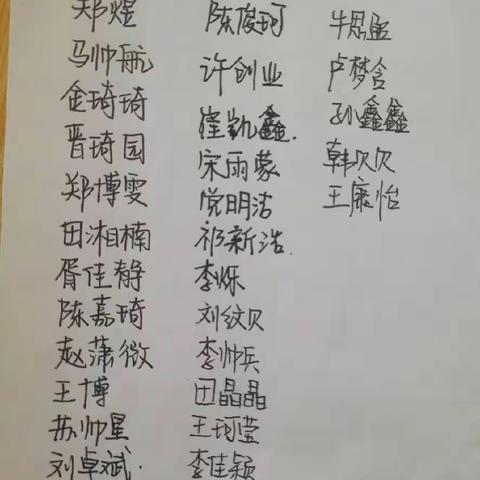 郑煜
马帅航
金琦琦
晋琦园
郑博雯
田湘楠
胥佳静
陈嘉琦
赵潇微
王博
苏帅星
刘卓斌.
陈俊珂
许创业
崔凯鑫.
宋雨蒙
党明洁
祁新浩.
李烁
刘纹贝
李帅兵
田晶晶
王珂莹
李佳颖
牛思孟
卢梦含
孙鑫鑫
韩贝贝
王康怡